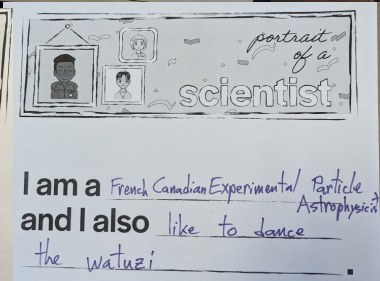 portrait
of a
scientist
I am a French Canadian Experimental Particle
Astrophysicist
and I also like to dance
the watuzi.